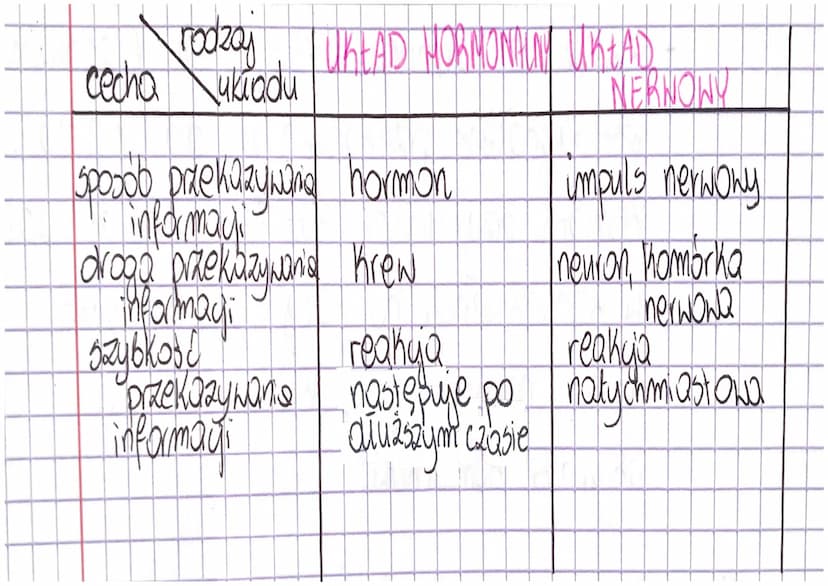 rodzaj
układu
cecha
UKŁAD HORMONALNY
UKŁAD
NERWOWY
sposób przekazywania
informacji
hormon
impuls nerwowy
droga przekazywania
informacji
krew
neuron, komórka
nerwowa
szybkość
przekazywania
informacji
reakcja
następuje po
dłuższym czasie
reakcja
natychmiastowa